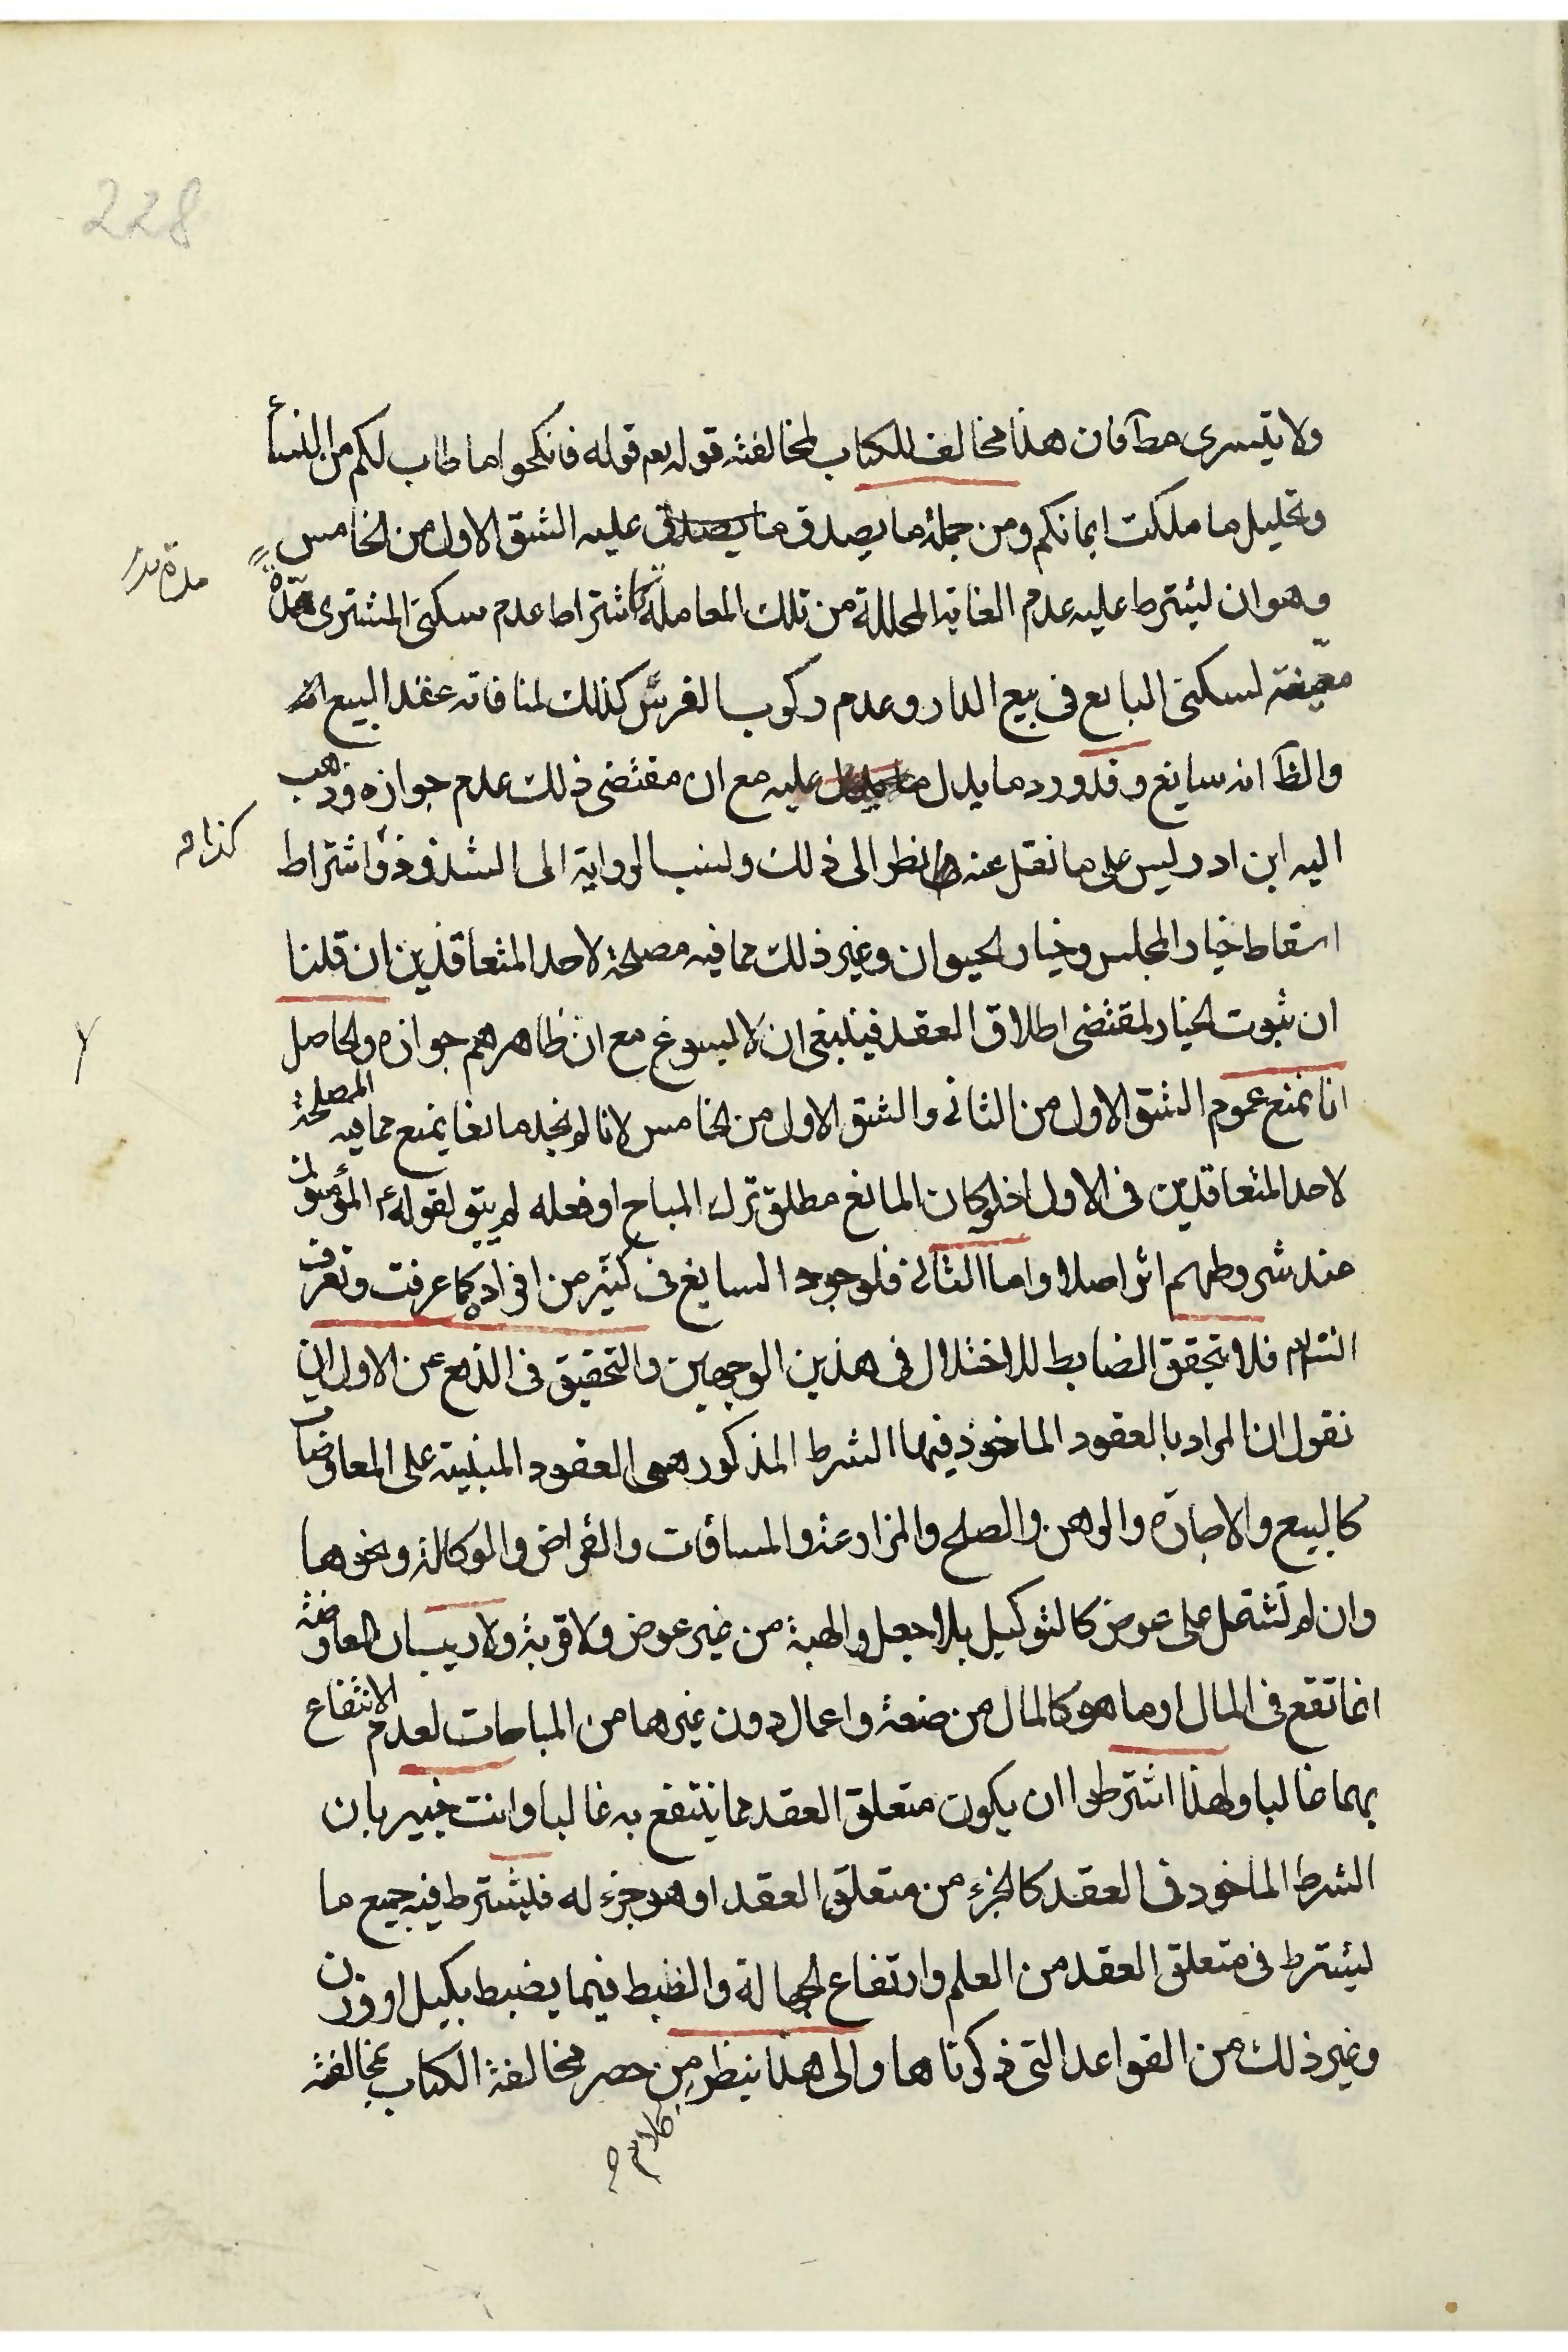 228
ولا يتسرى مطآ فان هذا مخالف للكتاب لمخالفته قوله تع قوله فانكحوا ما طاب لكم من النسأ
وتحليل ما ملكت ايمانكم ومن جملة ما يصدق ما يصدق عليه الشق الاول من الخامس
وهو ان يشترط عليه عدم الغاية المحللة من تلك المعاملة كاشتراط عدم سكنى المشترى مدة
مدة
معينة لسكنى البايع فى بيع الدار وعدم ركوب الفرس كذلك لمنافاته عقد البيع
والظآ انه سايغ وقد ورد ما يدل عليه مع ان مقتضى ذلك عدم جوازه وذهب
اليه ابن ادريس على ما نقل عنه نظرا الى ذلك ونسب الرواية الى الشذوذ واشتراط
كذا
اسقاط خيار المجلس وخيار الحيوان وغير ذلك مما فيه مصلحة لاحد المتعاقدين ان قلنا
ان ثبوت الخيار لمقتضى اطلاق العقد فينبغى ان لا يسوغ مع ان ظاهرهم جوازه والحاصل
انا نمنع عموم الشق الاول من الثانى والشق الاول من الخامس لانا لم نجد مانعا يمنع مما فيه المصلحة
لاحد المتعاقدين فى الاول اذ لو كان المانع مطلق ترك المباح او فعله لم يبق لقوله ع المؤمنون
عند شروطهم اثر اصلا واما الثانى فلوجود السايغ فى كثير من افراده كما عرفت وتعرف
انشآء فلا تحقق الضابط للاختلال فى هذين الوجهين والتحقيق فى الدفع عن الاول ان
نقول ان المراد بالعقود الماخوذ فيها الشرط المذكور هى العقود المبنية على المعاوضات
كالبيع والاجارة والرهن والصلح والمزارعة والمساقات والقراض والوكالة ونحوها
وان لم تشتمل على عوض كالتوكيل بلا جعل والهبة من غير عوض ولا قربة ولا ريب ان المعاوضة
انما تقع فى المال او ما هو كالمال من صنعة واعمال دون غيرها من المباحات لعدم الانتفاع
بها غالبا ولهذا اشترطوا ان يكون متعلق العقد مما ينتفع به غالبا وانت خبير بان
الشرط الماخوذ فى العقد كالجزء من متعلق العقد او هو جزء له فليشترط فيه جميع ما
يشترط فى متعلق العقد من العلم وارتفاع الجهالة والظبط فيما يضبط بكيل او وزن
وغير ذلك من القواعد التى ذكرناها والى هذا ينظر من حصر مخالفة الكتاب بمخالفة
كلام